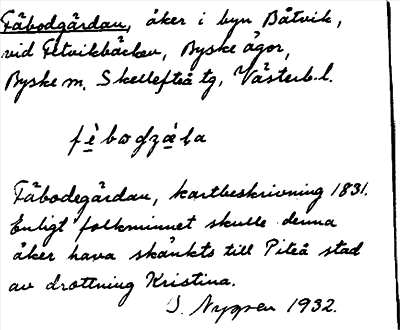 Fäbodgärdan, åker i byn Båtvik,
vid Fetvikbäcken, Byske ägor,
Byske sn. Skellefteå tg, Västerb.l.
fè bodzæ̀ḷa
Fäbodegärdan, kartbeskrivning 1831.
Enligt folkminnet skulle denna
åker hava skänkts till Piteå stad
av drottning Kristina.
J. Nygren 1932.